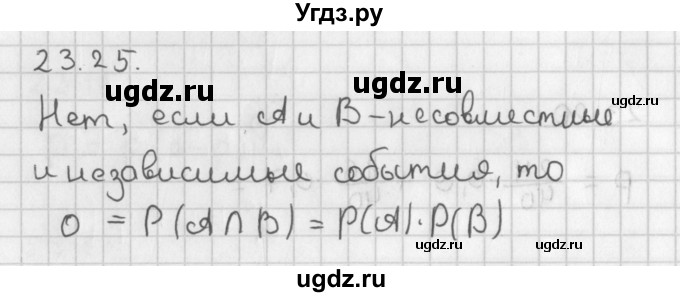 Угдз.ру
23.25.
ugdz.ru ugdz.ru ugdz.ru
Нет, если A и B - несовместные
и независимые события, то
0 = P(A ∩ B) = P(A)·P(B)
ugdz.ru ugdz.ru
ugdz.ru